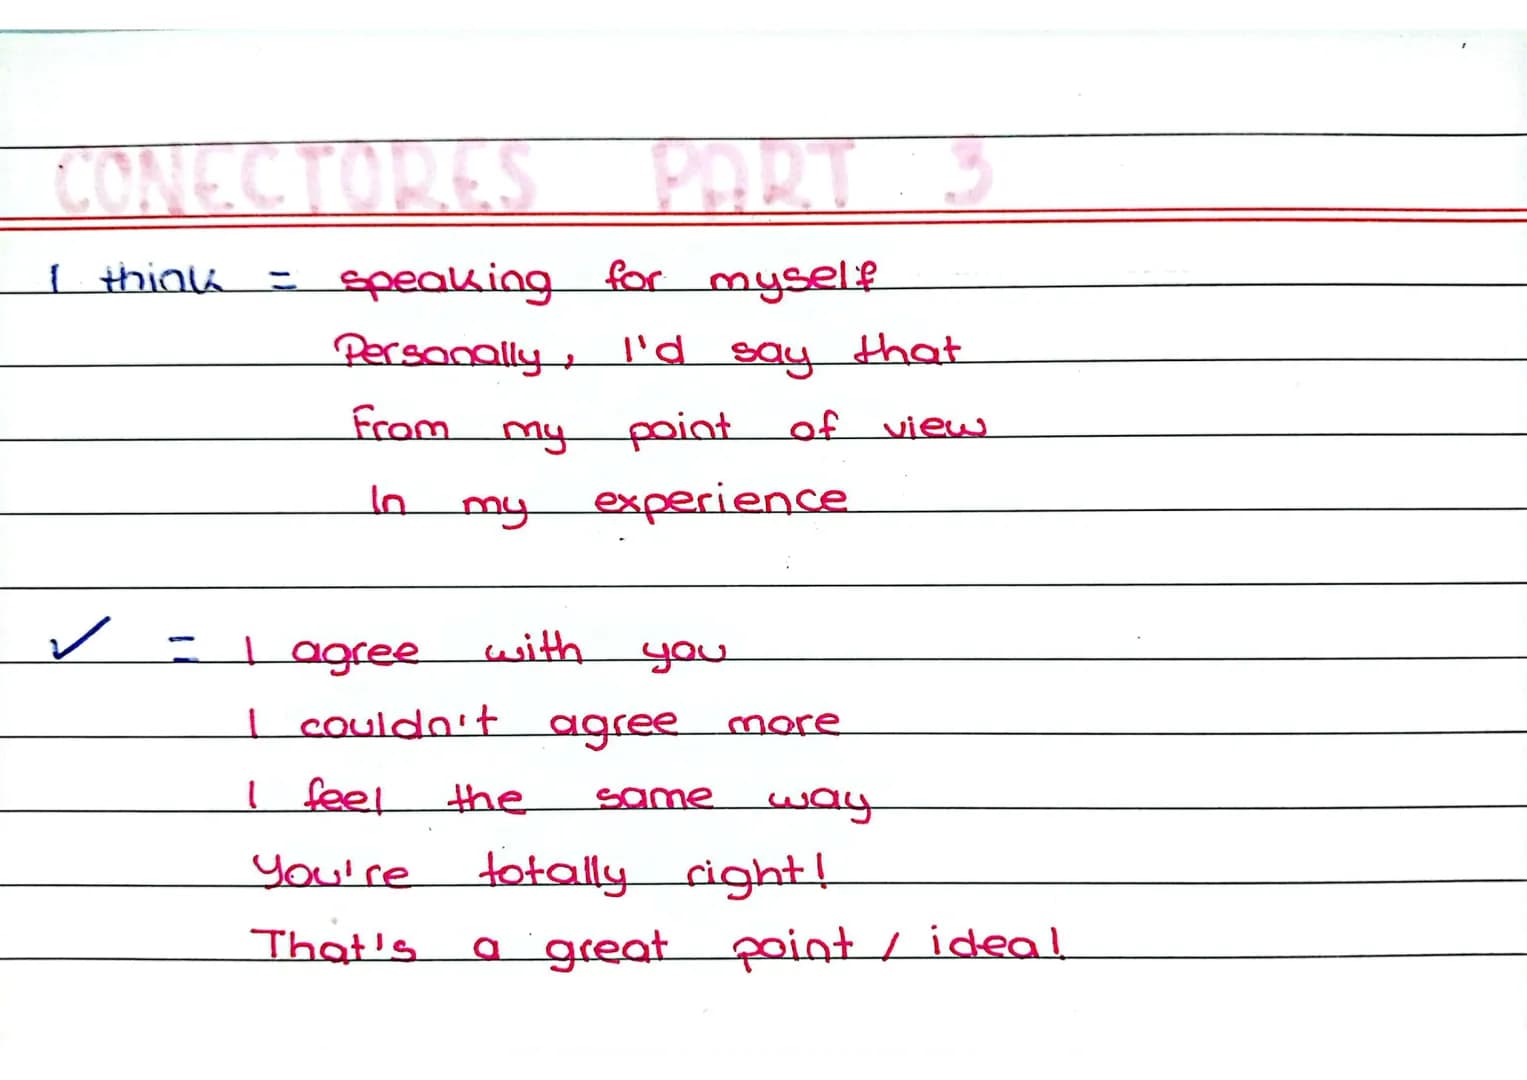 CONECTORES PART 3
I think = speaking for myself
Personally, I'd say that
From my point of view
In my experience
✓ = I agree with you
I couldn't agree more
I feel the same way
You're totally right!
That's a great point / idea!